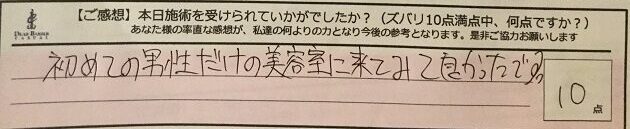 【ご感想】本日施術を受けられていかがでしたか？（ズバリ10点満点中、何点ですか？）
あなた様の率直な感想が、私達の何よりの力となり今後の参考となります。是非ご協力お願いします
DEAR BARBER
初めての男性だけの美容室に来てみて良かったです。
10点